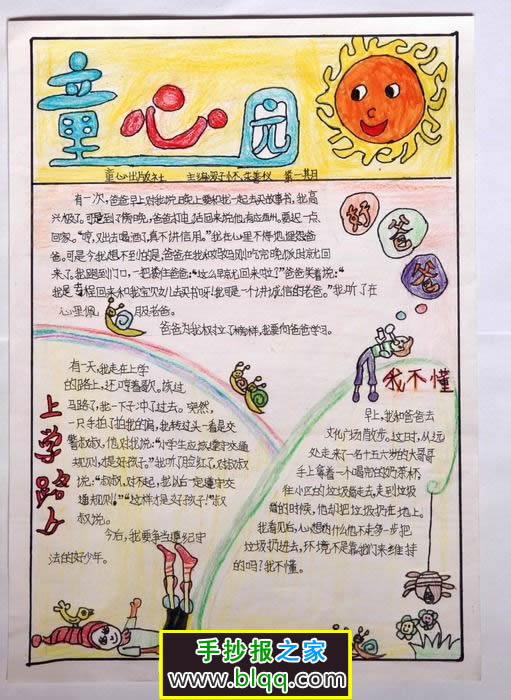 童心园
童心出版社 主编 第一期
好爸爸
有一次,爸爸早上对我说:晚上要和我一起去买故事书,我高
兴极了。可是到了傍晚,爸爸打电话回来说,他有应酬,要迟一点
回家。“哼,又出去喝酒了,真不讲信用。”我在心里不停地埋怨爸
爸。可是令我想不到的是,爸爸在我和妈妈刚吃完晚饭时就回
来了。我跑到门口,一把搂住爸爸:“这么早就回来啦?”爸爸笑着说:“
我是专程回来和我宝贝女儿去买书呀!我可是一个讲诚信的老爸。”我听了在
心里佩服老爸。
爸爸为我树立了榜样,我要向爸爸学习。
上学路上
有一天,我走在上学
的路上,还哼着歌。该过
马路了,我一下子冲了过去。突然,
一只手拍了拍我的肩,我转过头一看是交
警叔叔,他对我说:“小学生应该遵守交通
规则,才是好孩子。”我听了脸红了,对叔叔
说:“叔叔,对不起,我以后一定遵守交
通规则!”“这样才是好孩子!”叔
叔说。
今后,我更要争当遵纪守
法的好少年。
我不懂
早上,我和爸爸去
文化广场散步。这时,从远
处走来了一名十五六岁的大哥哥
手上拿着一个喝完的奶茶杯,
往小区的垃圾箱走去,走到垃圾
箱的时候,他却把垃圾扔在地上。
我看见后,心想:为什么他不走多一步把
垃圾扔进去,环境不是靠我们来维持
的吗?我不懂。
手抄报之家
www.blqq.com